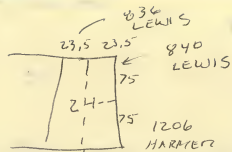 836
LEWIS
23,5 23,5
840
LEWIS
75
24
75
1206
HARMER